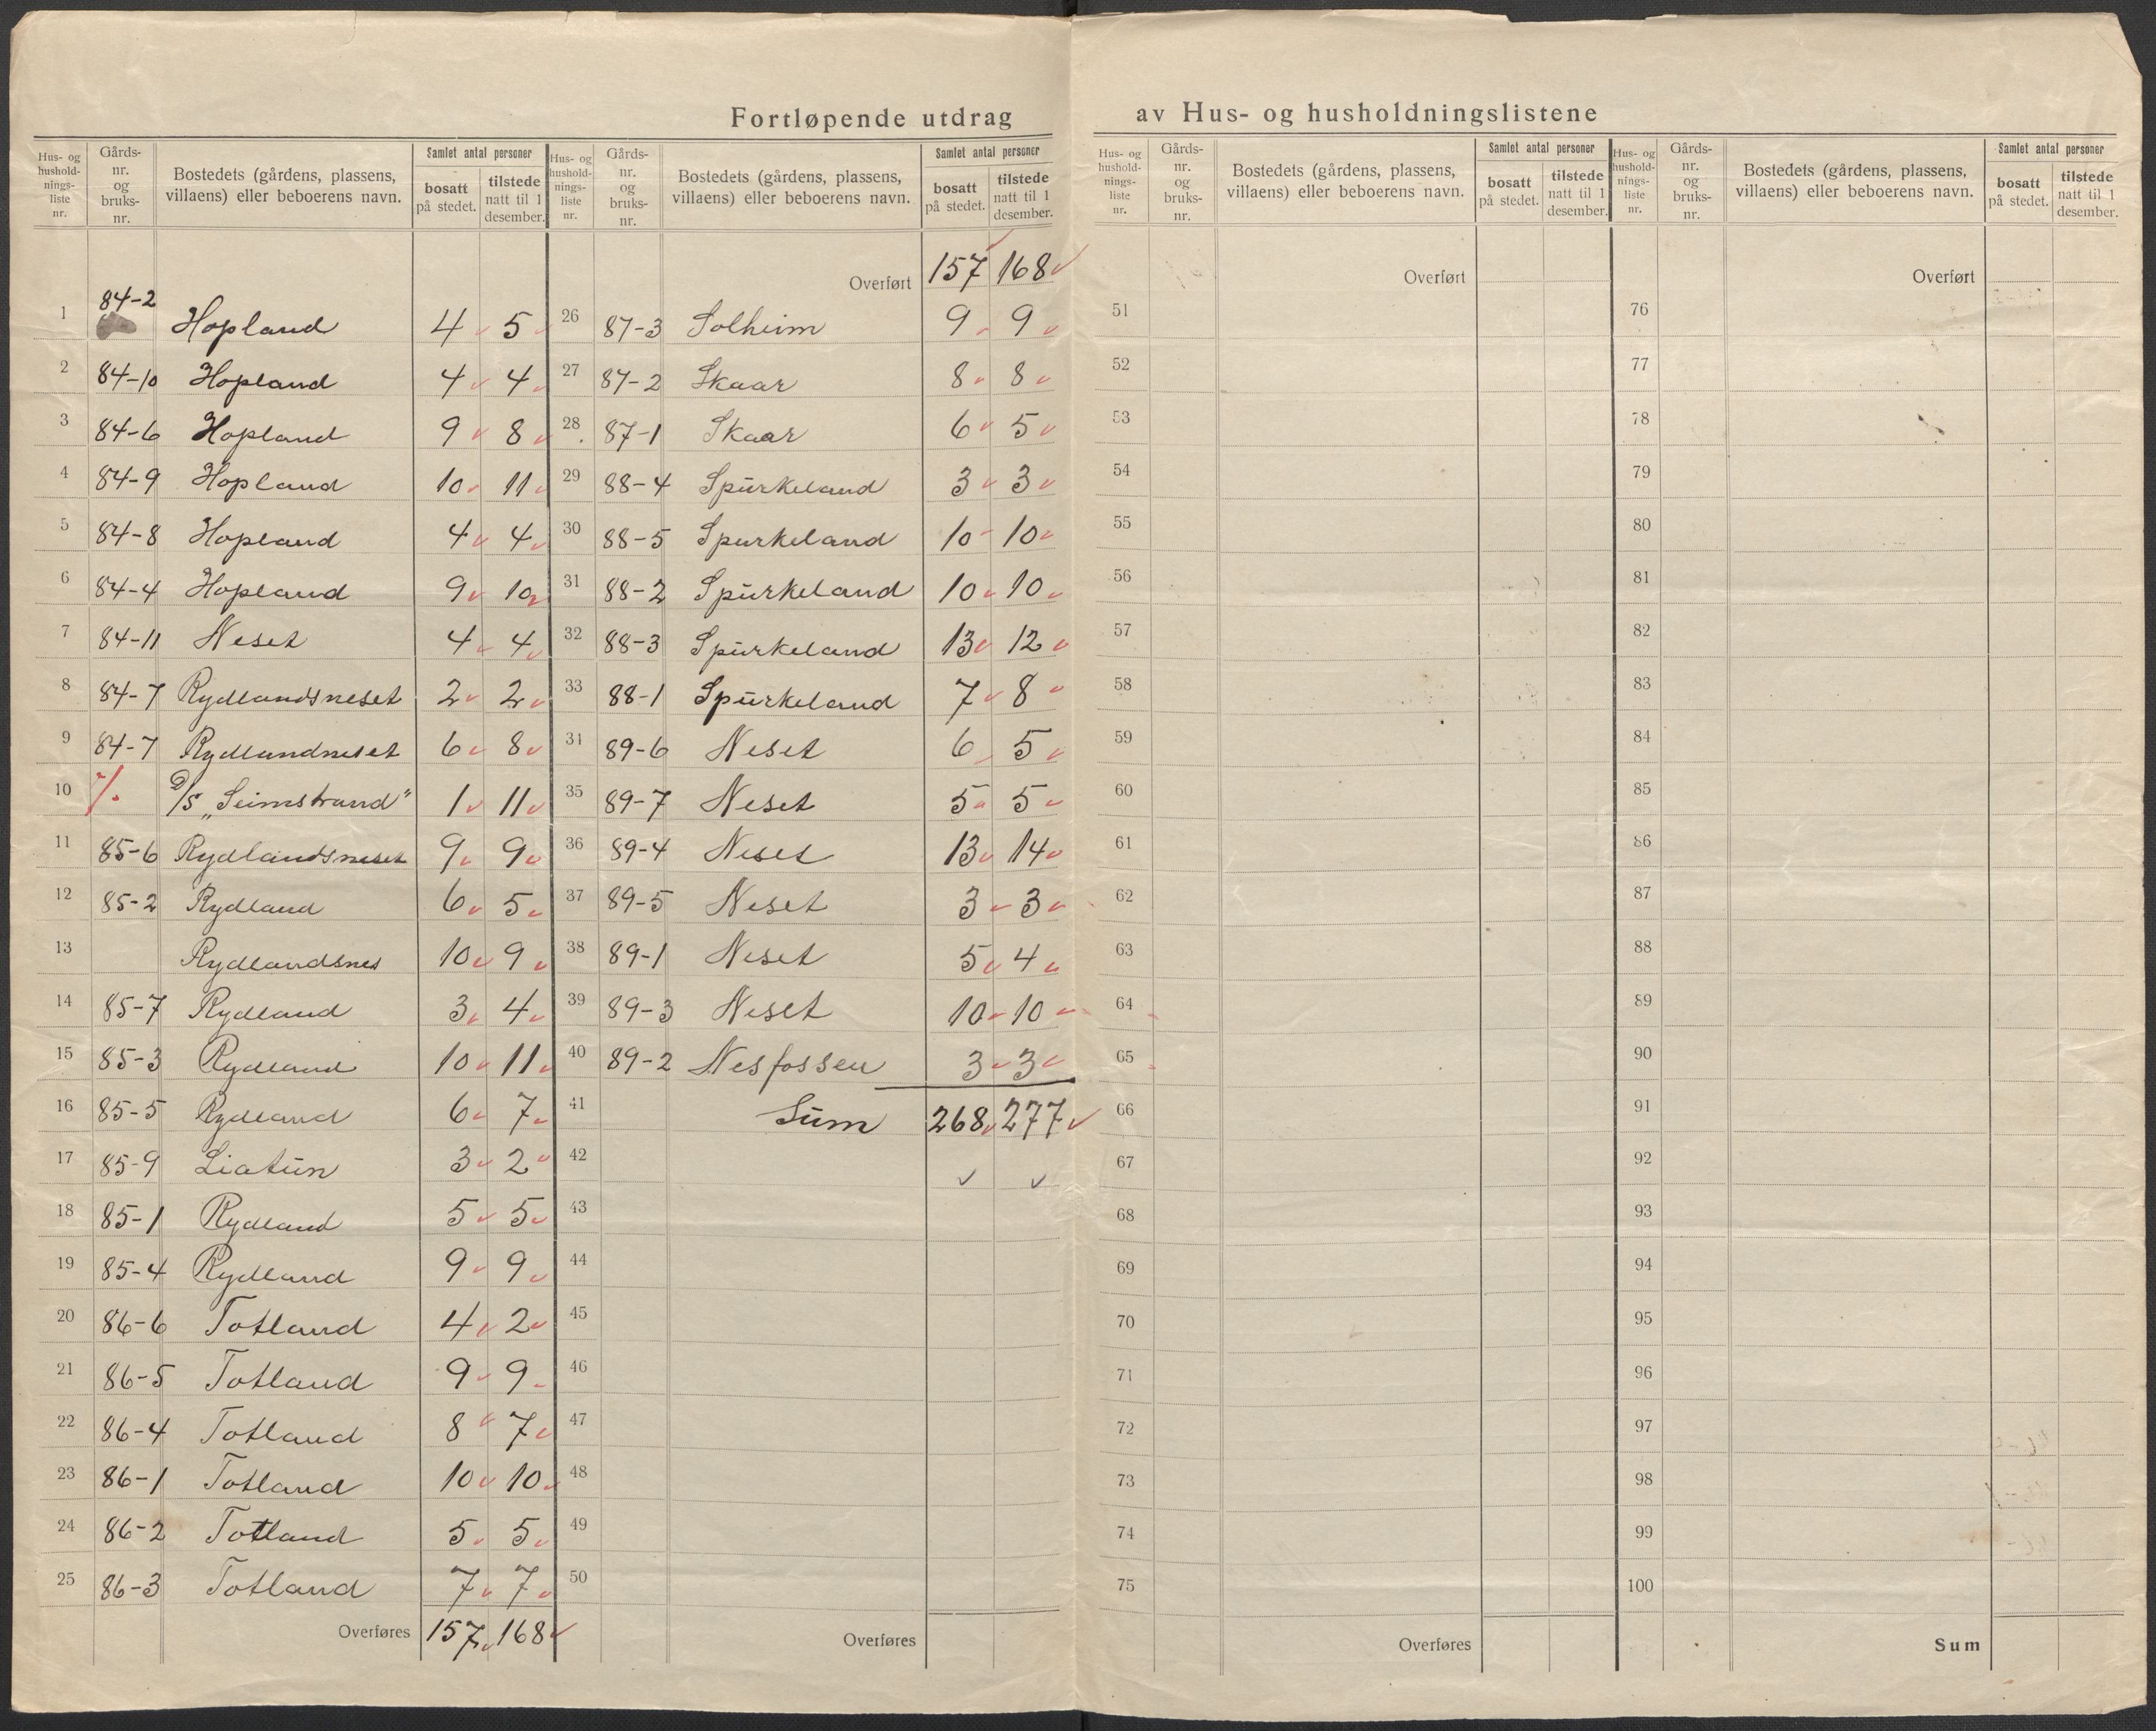 Fortløpende utdrag av Hus- og husholdningslistene
Hus- og hushold- nings- liste nr. | Gårds- nr. og bruks- nr. | Bostedets (gårdens, plassens, villaens) eller beboerens navn. | Samlet antal personer | bosatt på stedet. | tilstede natt til 1 desember.
1 84-2 Hopland 4 5
2 84-10 Hopland 4 4
3 84-6 Hopland 9 8
4 84-9 Hopland 10 11
5 84-8 Hopland 4 4
6 84-4 Hopland 9 10
7 84-11 Neset 4 4
8 84-7 Rydlandsneset 2 2
9 84-7 Rydlandneset 6 8
10 ./. D/S „Seimstrand" 1 11
11 85-6 Rydlandsneset 9 9
12 85-2 Rydland 6 5
13 Rydlandsnes 10 9
14 85-7 Rydland 3 4
15 85-3 Rydland 10 11
16 85-5 Rydland 6 7
17 85-9 Liatun 3 2
18 85-1 Rydland 5 5
19 85-4 Rydland 9 9
20 86-6 Totland 4 2
21 86-5 Totland 9 9
22 86-4 Totland 8 7
23 86-1 Totland 10 10
24 86-2 Totland 5 5
25 86-3 Totland 7 7
Overføres 157 168
Hus- og hushold- nings- liste nr. | Gårds- nr. og bruks- nr. | Bostedets (gårdens, plassens, villaens) eller beboerens navn. | Samlet antal personer | bosatt på stedet. | tilstede natt til 1 desember.
Overført 157 168
26 87-3 Solheim 9 9
27 87-2 Skaar 8 8
28 87-1 Skaar 6 5
29 88-4 Spurkeland 3 3
30 88-5 Spurkeland 10 10
31 88-2 Spurkeland 10 10
32 88-3 Spurkeland 13 12
33 88-1 Spurkeland 7 8
31 89-6 Neset 6 5
35 89-7 Neset 5 5
36 89-4 Neset 13 14
37 89-5 Neset 3 3
38 89-1 Neset 5 4
39 89-3 Neset 10 10
40 89-2 Nesfossen 3 3
41 Sum 268 277
42
43
44
45
46
47
48
49
50
Overføres
Hus- og hushold- nings- liste nr. | Gårds- nr. og bruks- nr. | Bostedets (gårdens, plassens, villaens) eller beboerens navn. | Samlet antal personer | bosatt på stedet. | tilstede natt til 1 desember.
Overført
51
52
53
54
55
56
57
58
59
60
61
62
63
64
65
66
67
68
69
70
71
72
73
74
75
Overføres
Hus- og hushold- nings- liste nr. | Gårds- nr. og bruks- nr. | Bostedets (gårdens, plassens, villaens) eller beboerens navn. | Samlet antal personer | bosatt på stedet. | tilstede natt til 1 desember.
Overført
76
77
78
79
80
81
82
83
84
85
86
87
88
89
90
91
92
93
94
95
96
97
98
99
100
Sum